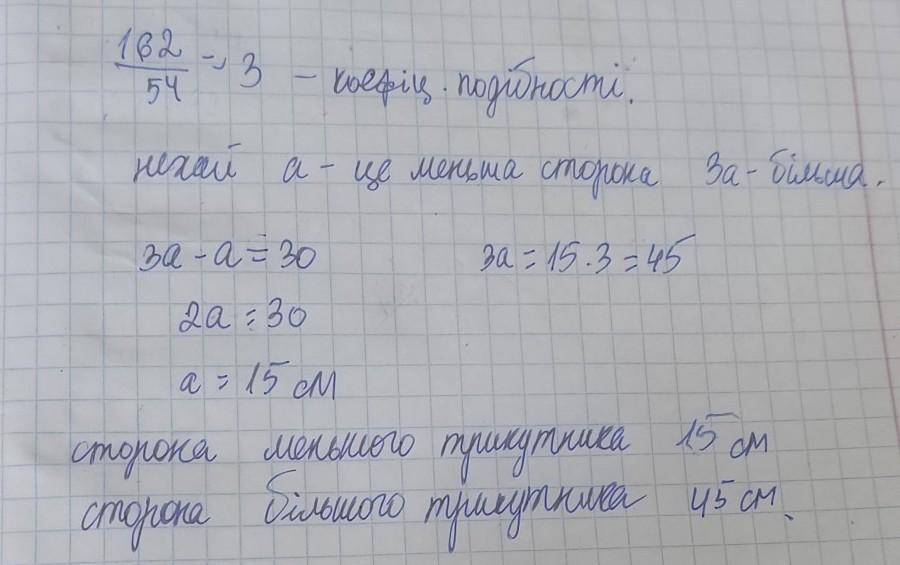 162/54 = 3 - коефіц. подібності.
нехай a - це меньша сторона 3a - більша.
3a - a = 30 3a = 15 · 3 = 45
2a = 30
a = 15 см
сторона меньшого трикутника 15 см
сторона більшого трикутника 45 см.